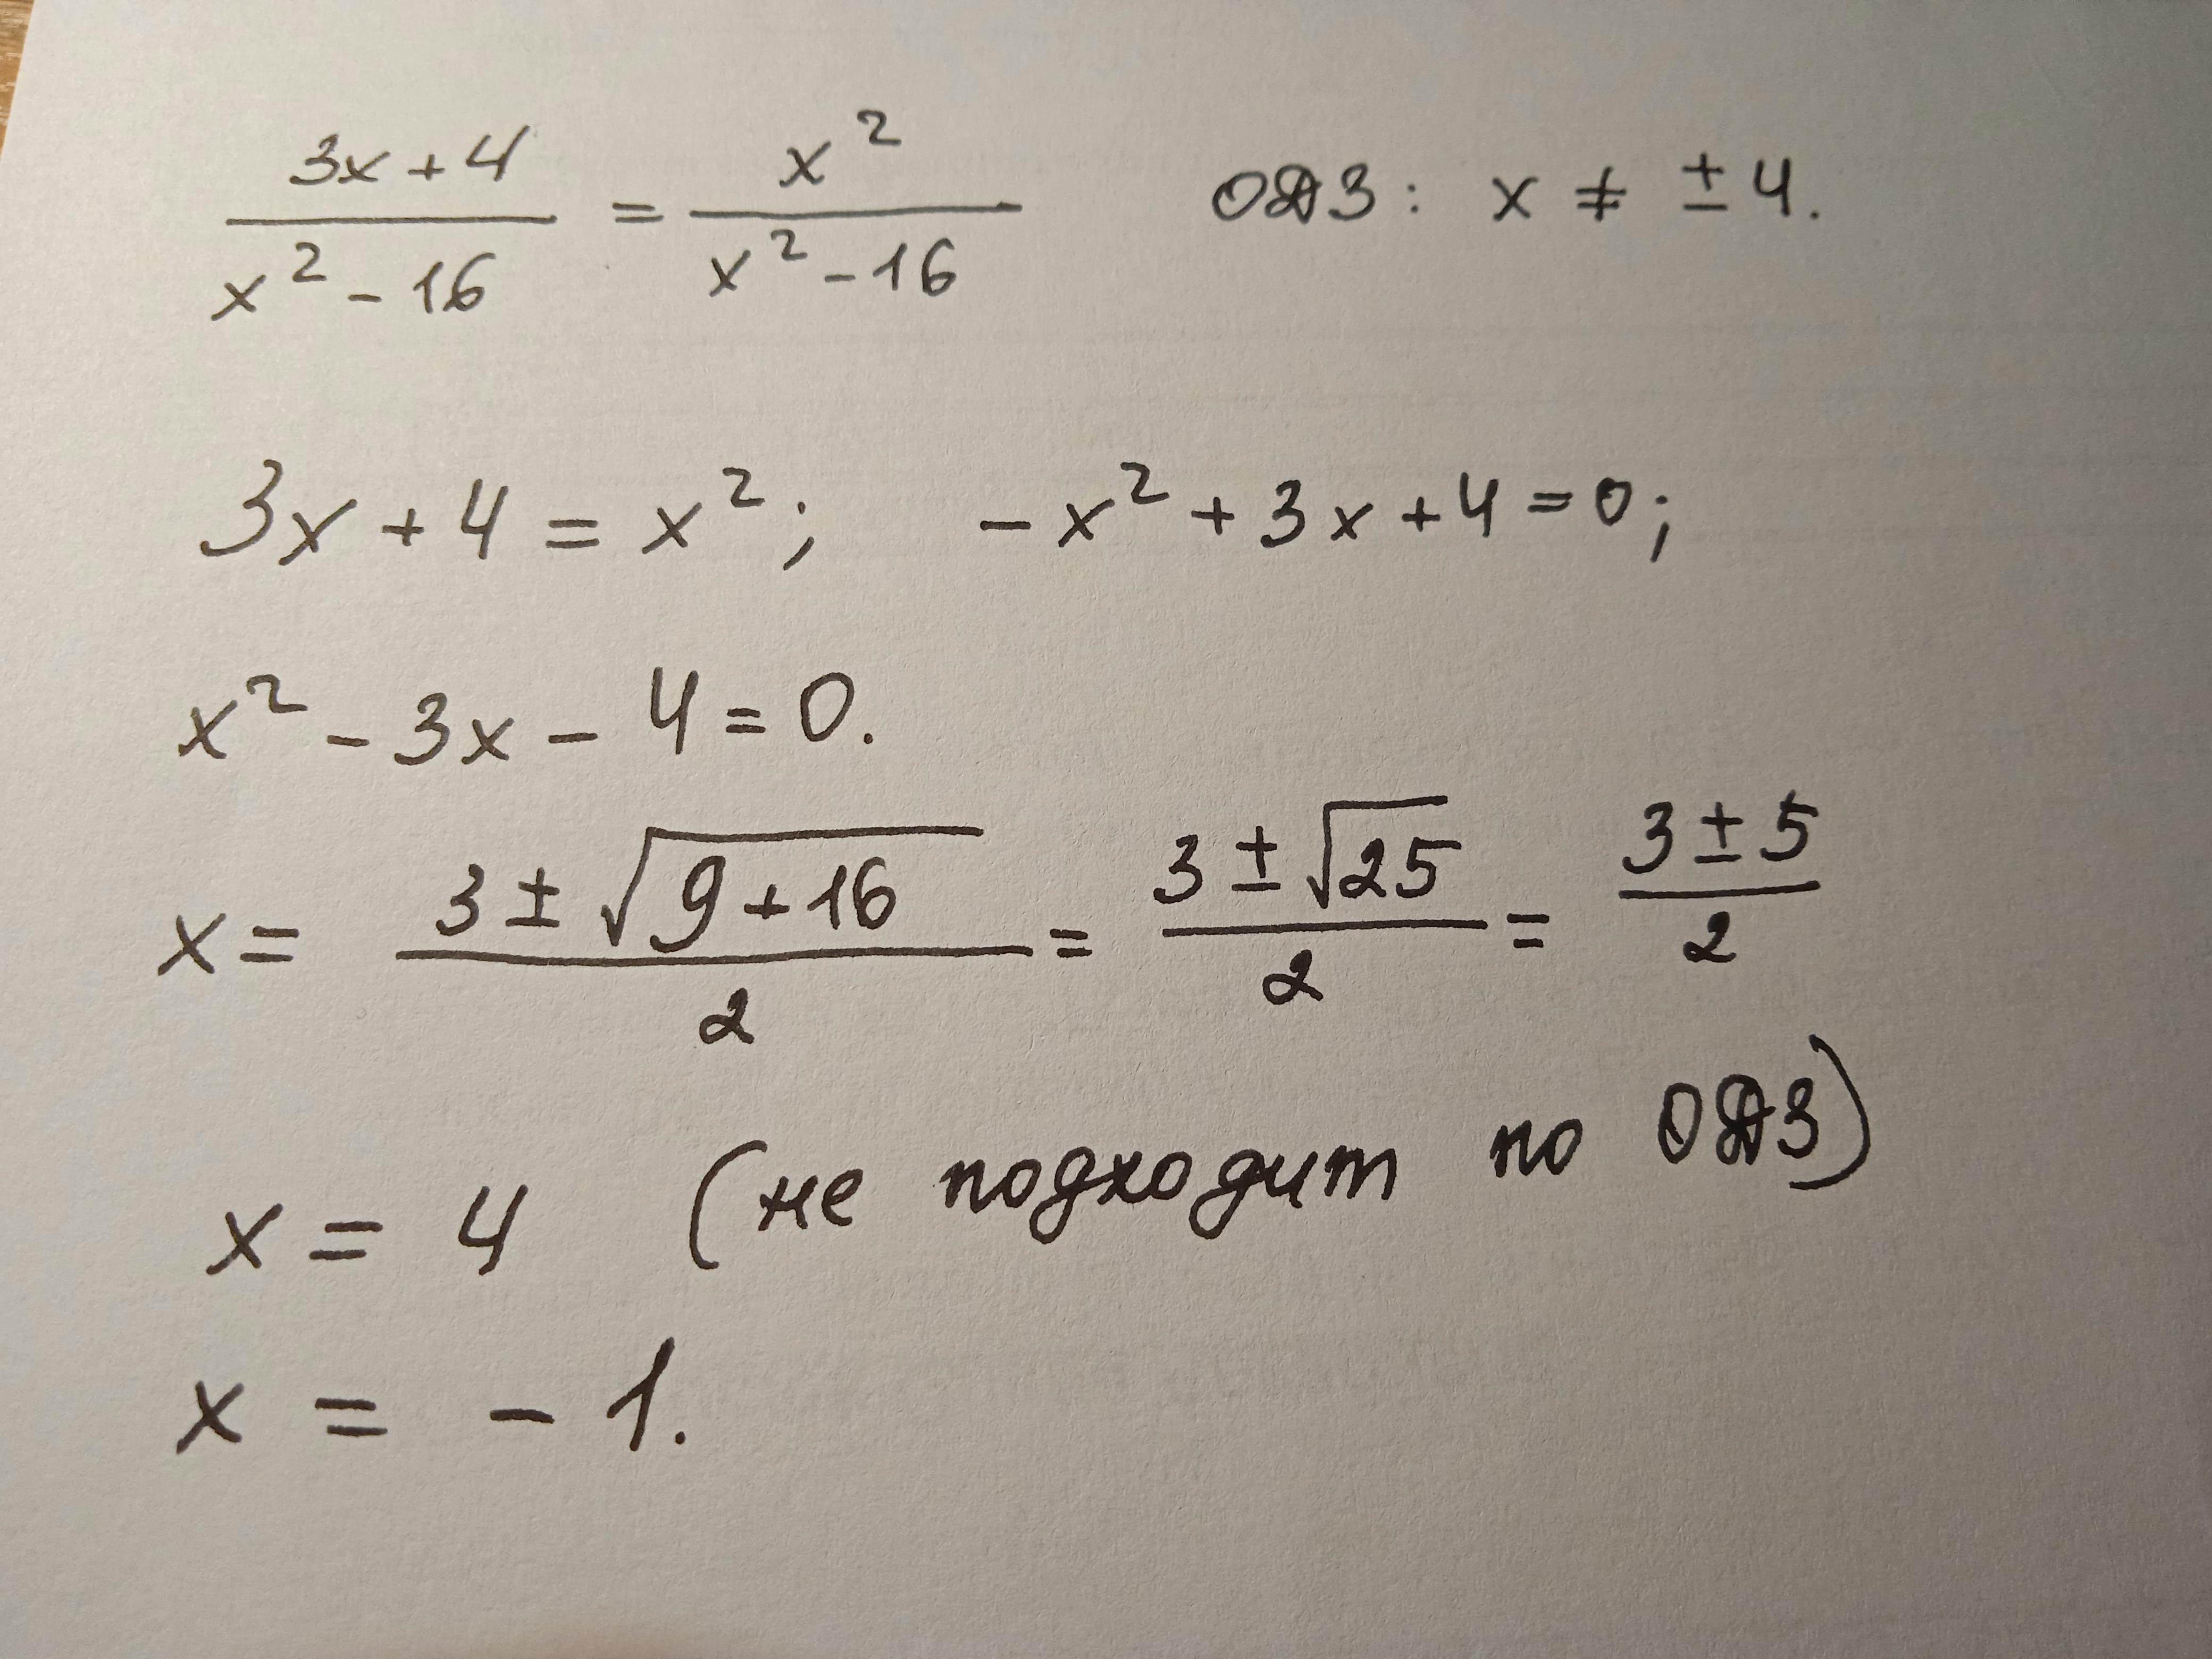 (3x+4)/(x²-16) = x²/(x²-16) ОДЗ: x ≠ ±4.
3x+4 = x²; -x²+3x+4=0;
x²-3x-4=0.
x = (3±√(9+16))/2 = (3±√25)/2 = (3±5)/2
x = 4 (не подходит по ОДЗ)
x = -1.